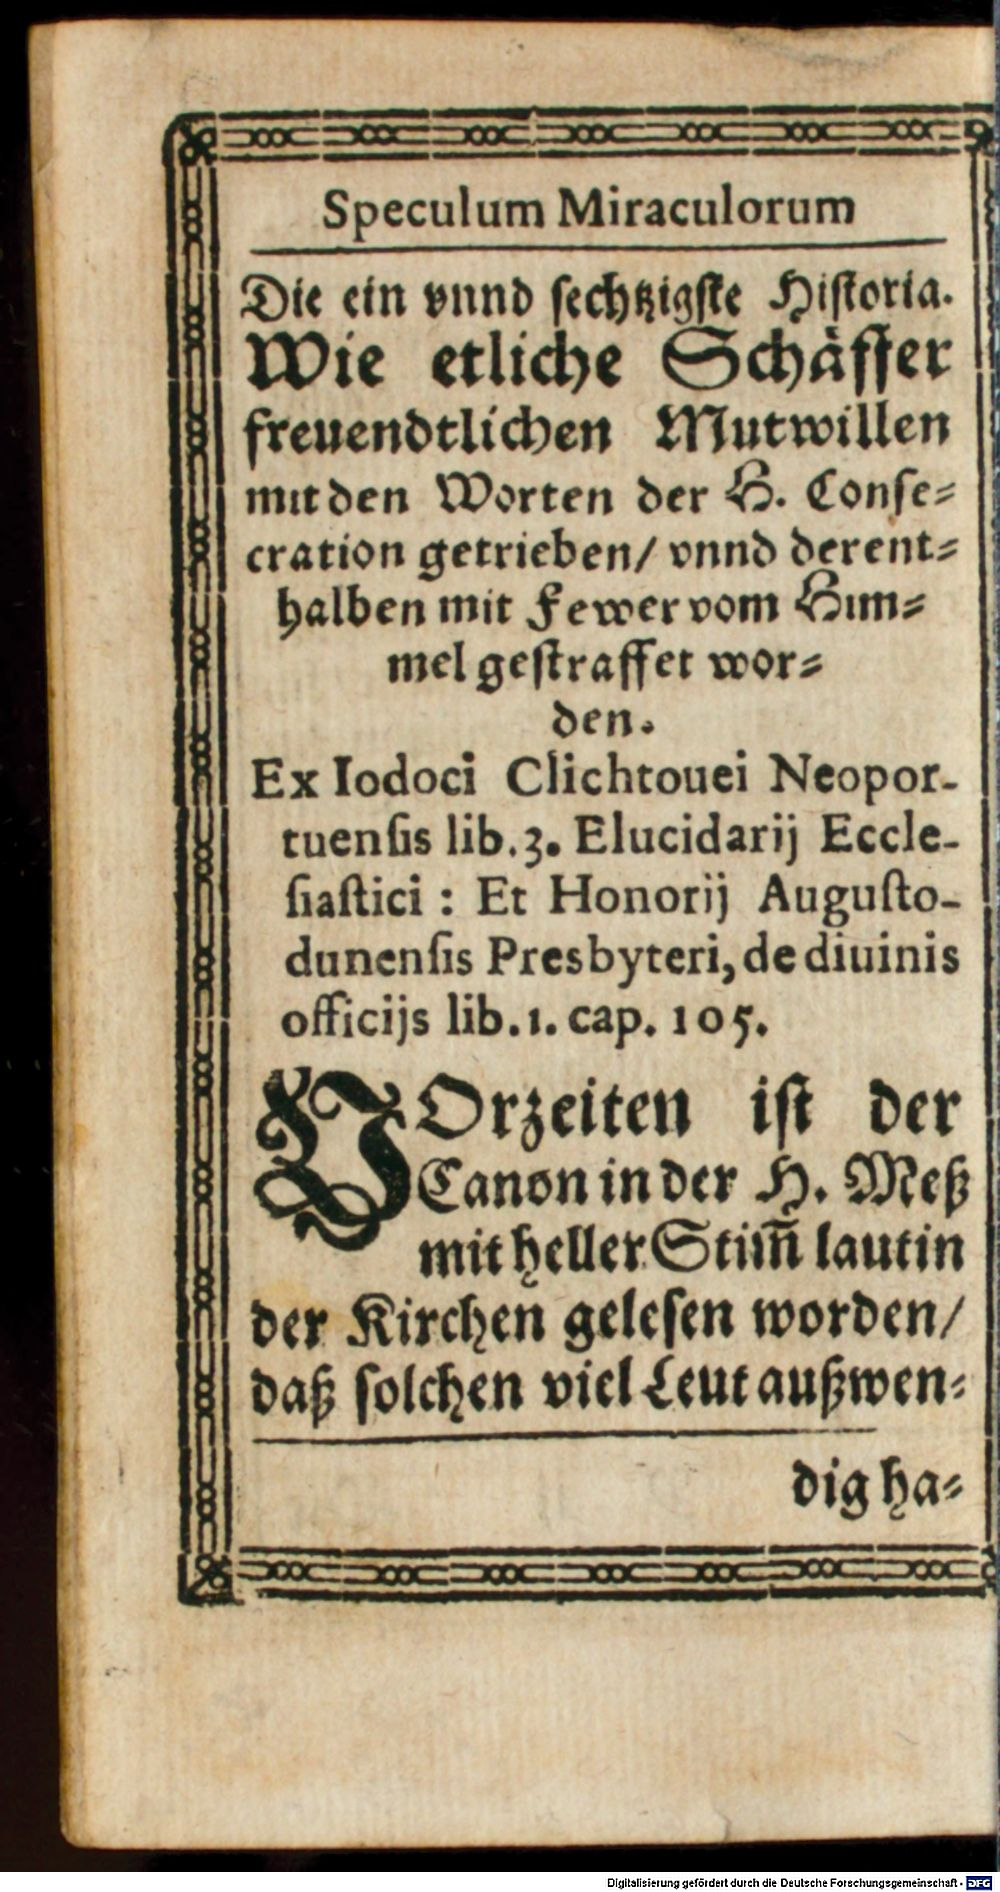 Speculum Miraculorum
Die ein vnnd sechtzigste Historia.
Wie etliche Schäffer
freuendtlichen Mutwillen
mit den Worten der H. Conse-
cration getrieben/ vnnd derent-
halben mit Fewer vom Him-
mel gestraffet wor-
den.
Ex Iodoci Clichtouei Neopor-
tuensis lib. 3. Elucidarij Eccle-
siastici : Et Honorij Augusto-
dunensis Presbyteri, de diuinis
officijs lib. 1. cap. 105.
VOrzeiten ist der
Canon in der H. Meß
mit heller Stim̃ laut in
der Kirchen gelesen worden/
daß solchen viel Leut außwen-
dig ha-
Digitalisierung gefördert durch die Deutsche Forschungsgemeinschaft - DFG